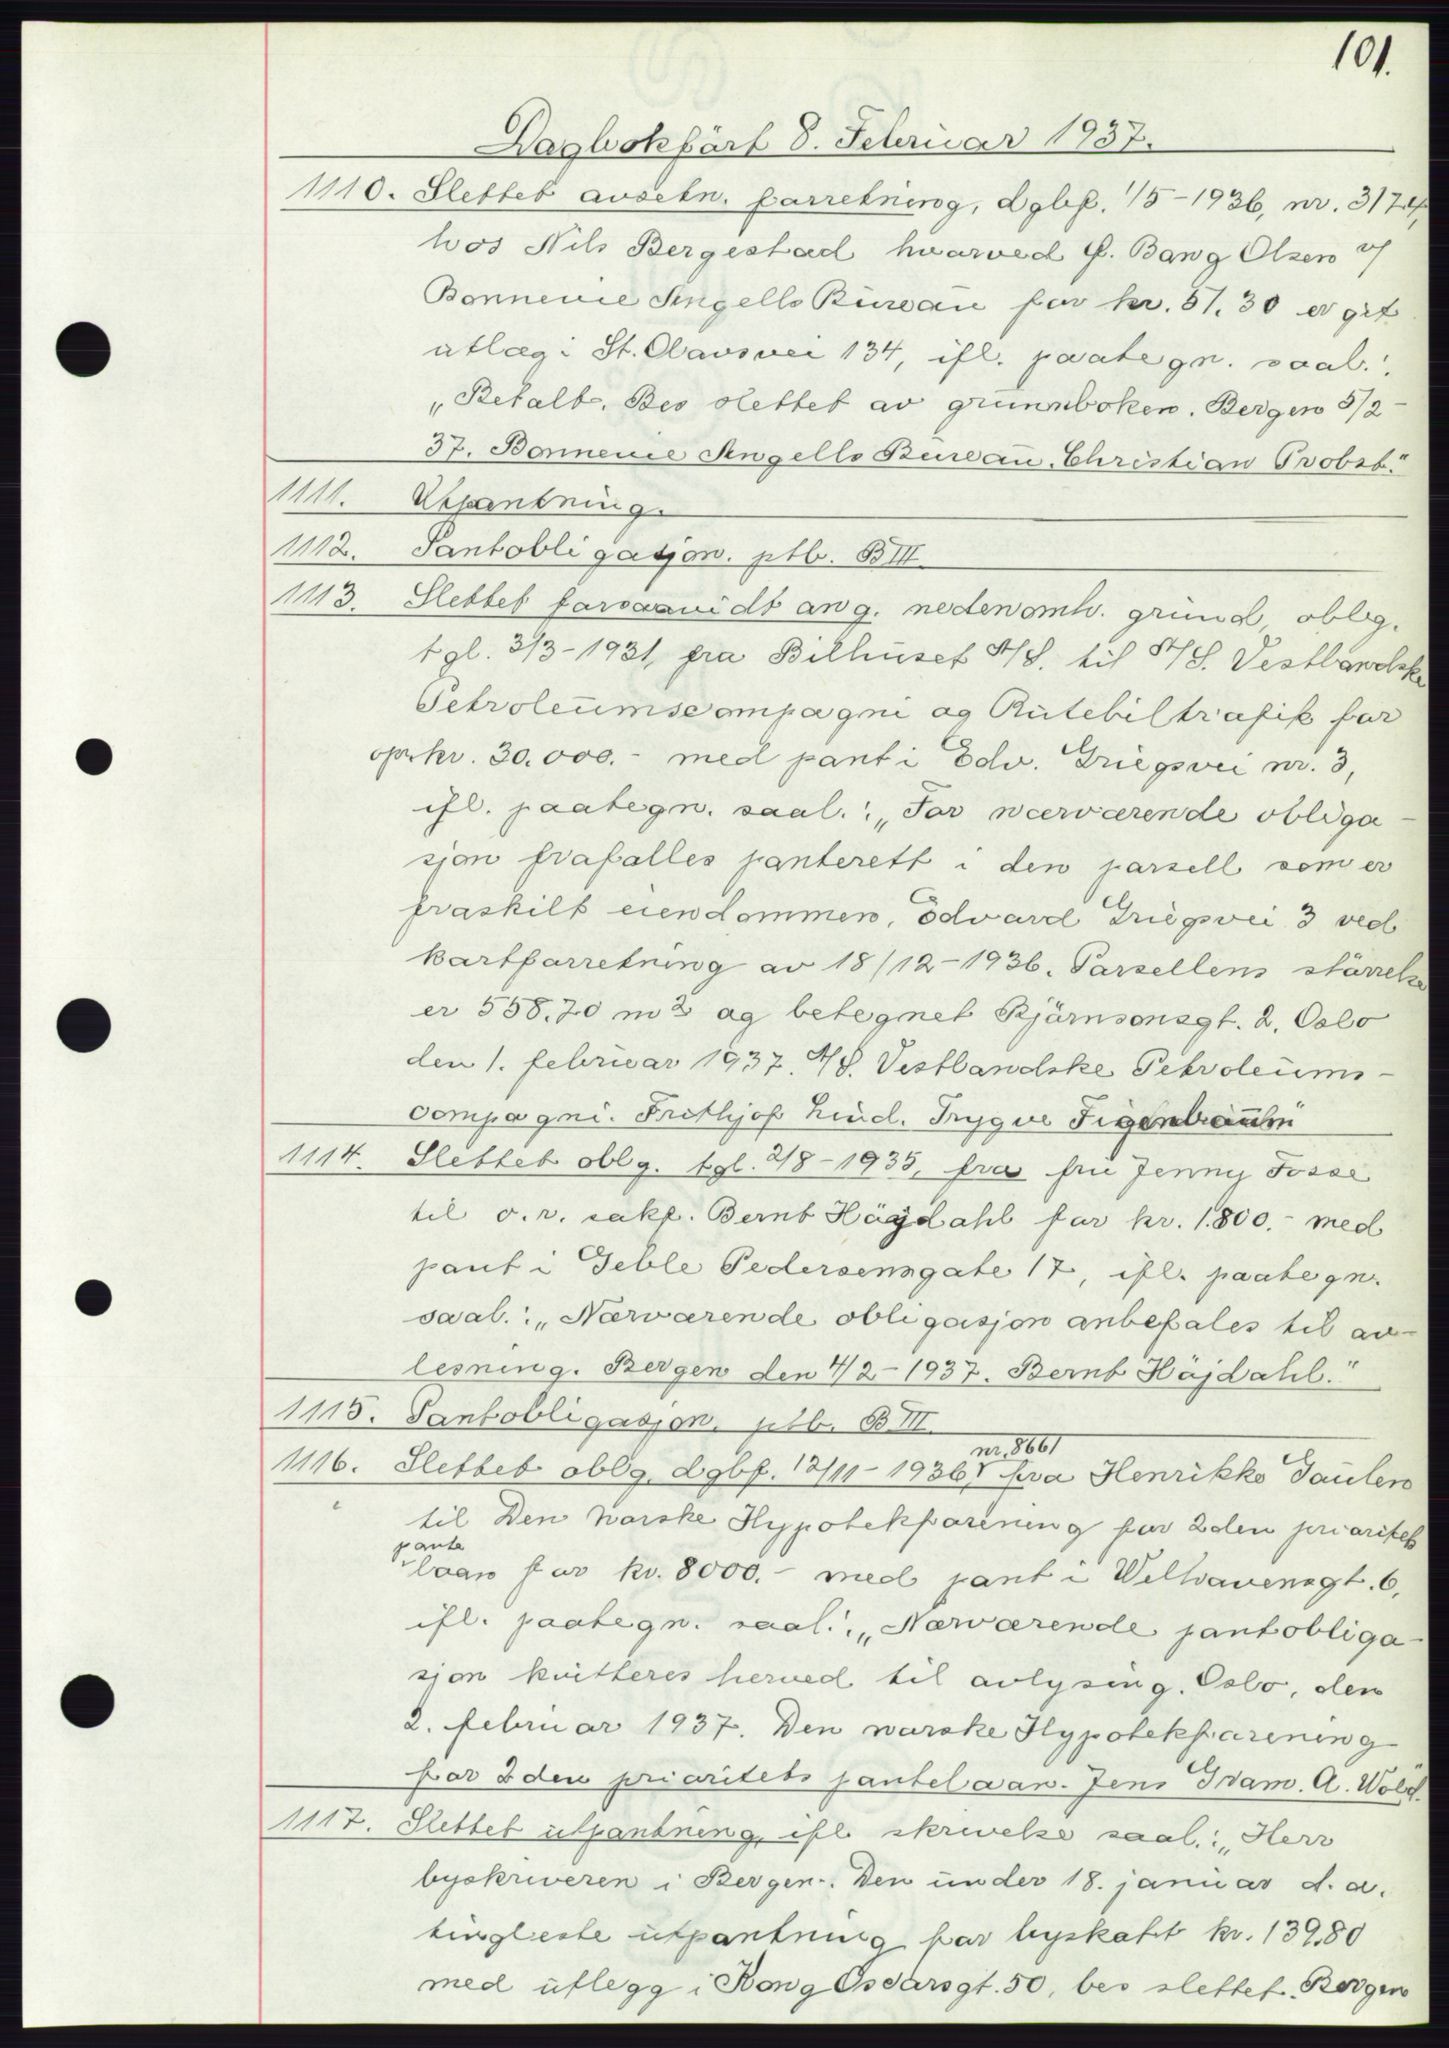 101.
Dagbokført 8. Februar 1937.
1110. Slettet avsetn. forretning, dgbf. 1/5-1936, nr. 3174,
hos Nils Bergestad hvorved F. Bang Olsen v/
Bonnevie Angells Bureau for kr. 51.30 er git
utlæg i St. Olavsvei 134, ifl. paategn. saal.:
„Betalt. Bes slettet av grunnboken. Bergen 5/2-
37. Bonnevie Angells Bureau. Christian Probst."
1111. Utpantning.
1112. Pantobligasjon. ptb. B III.
1113. Slettet forsaavidt ang. nedenomh. grund, oblig.
tgl. 3/3-1931, fra Bilhuset A/S. til A/S. Vestlandske
Petroleumscompagni og Rutebiltrafik for
opr. kr. 30.000.- med pant i Edv. Griegsvei nr. 3,
ifl. paategn. saal.: „For nærværende obliga-
sjon frafalles panterett i den parsell som er
fraskilt eiendommen, Edvard Griegsvei 3 ved
kartforretning av 18/12-1936. Parsellens størrelse
er 558.70 m2 og betegnet Bjørnsonsgt. 2. Oslo
den 1. februar 1937. A/S. Vestlandske Petroleums-
compagni. Frithjof Lind. Trygve Figenbaum"
1114. Slettet oblg. tgl. 2/8-1935, fra fru Jenny Fosse
til o.r. sakf. Bernt Højdahl for kr. 1.800.- med
pant i Geble Pedersensgate 17, ifl. paategn.
saal.: „Nærværende obligasjon anbefales til av-
lesning. Bergen den 4/2-1937. Bernt Højdahl."
1115. Pantobligasjon. ptb. B III.
nr. 8661
1116. Slettet oblg. dgbf. 12/11-1936, fra Henrikke Paulen
til Den norske Hypotekforening for 2den prioritets
pante
laan for kr. 8000.- med pant i Welhavensgt. 6,
ifl. paategn. saal.: „Nærværende pantobliga-
sjon kvitteres herved til avlysing. Oslo, den
2. februar 1937. Den norske Hypotekforening
for 2den prioritets pantelaan. Jens Gram. A. Wold."
1117. Slettet utpantning, ifl. skrivelse saal.: „Herr
byskriveren i Bergen. Den under 18. januar d.a.
tingleste utpantning for byskatt kr. 139.80
med utlegg i Kong Oscarsgt. 50, bes slettet. Bergen